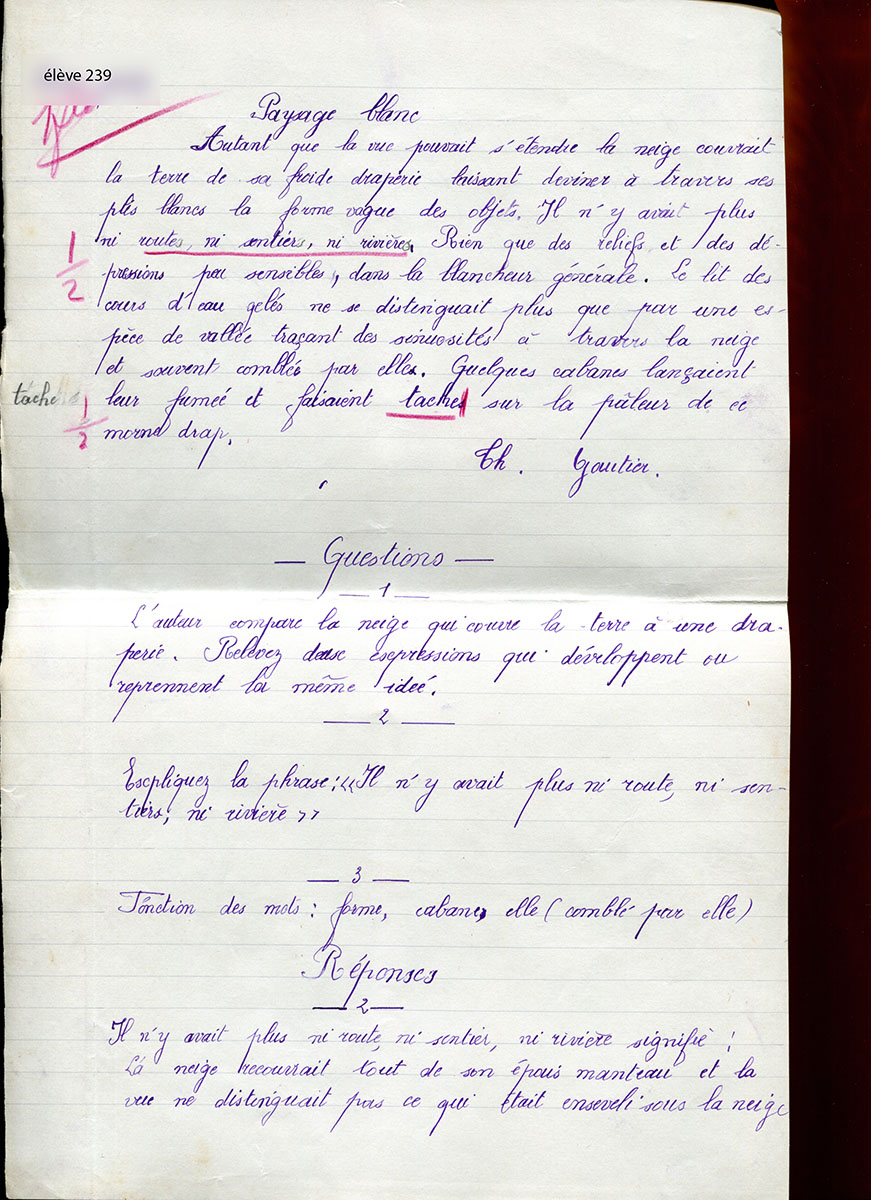 élève 239
Paysage blanc
Autant que la vue pouvait s'étendre la neige couvrait
la terre de sa froide draperie laissant deviner à travers ses
plis blancs la forme vague des objets. Il n'y avait plus
ni routes, ni sentiers, ni rivières. Rien que des reliefs et des dé-
1/2
pressions peu sensibles, dans la blancheur générale. Le lit des
cours d'eau gelés ne se distinguait plus que par une es-
pèce de vallée traçant des sinuosités à travers la neige
et souvent comblés par elles. Quelques cabanes lançaient
tache
leur fumeé et faisaient taches sur la pâleur de ce
1/2
morne drap.
Th. Gautier.
— Questions —
— 1 —
L'auteur compare la neige qui couvre la terre à une dra-
perie. Relevez deuse escpressions qui dévéloppent ou
reprennent la même ideé.
— 2 —
Escpliquez la phrase: « Il n'y avait plus ni route, ni sen-
tiers, ni rivière »
— 3 —
Fonction des mots: forme, cabanes, elle (comblé par elle)
Réponses
— 2 —
Il n'y avait plus ni route, ni sentier, ni rivière signifie :
La neige recouvrait tout de son épais manteau et la
vue ne distinguait pas ce qui était enseveli sous la neige